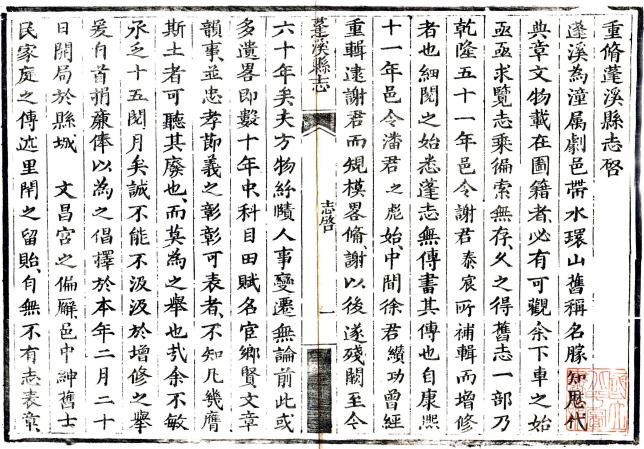 重脩蓬溪縣志啓
蓬溪為潼属劇邑帶水環山舊稱名勝知歷代
典章文物載在圖籍者必有可觀余下車之始
亟亟求覽志乘徧索無存久之得舊志一部乃
乾隆五十一年邑令謝君泰宸所補輯而增修
者也細閱之始悉蓬志無傳書其傳也自康熙
十一年邑令潘君之彪始中間徐君纘功曾經
重輯逮謝君而規模畧備謝以後遂殘闕至今
蓬溪縣志
志啓
一
六十年矣夫方物紛賾人事變遷無論前此或
多遺畧即數十年中科目田賦名宦鄉賢文章
韻事並忠孝節義之彰彰可表者不知凡幾膺
斯土者可聽其廢也而莫為之舉也哉余不敏
承乏十五閱月矣誠不能不汲汲於增修之舉
爰自首捐廉俸以為之倡擇於本年二月二十
日開局於縣城 文昌宮之偏廨邑中紳舊士
民家庭之傳述里閈之留貽自無不有志表章